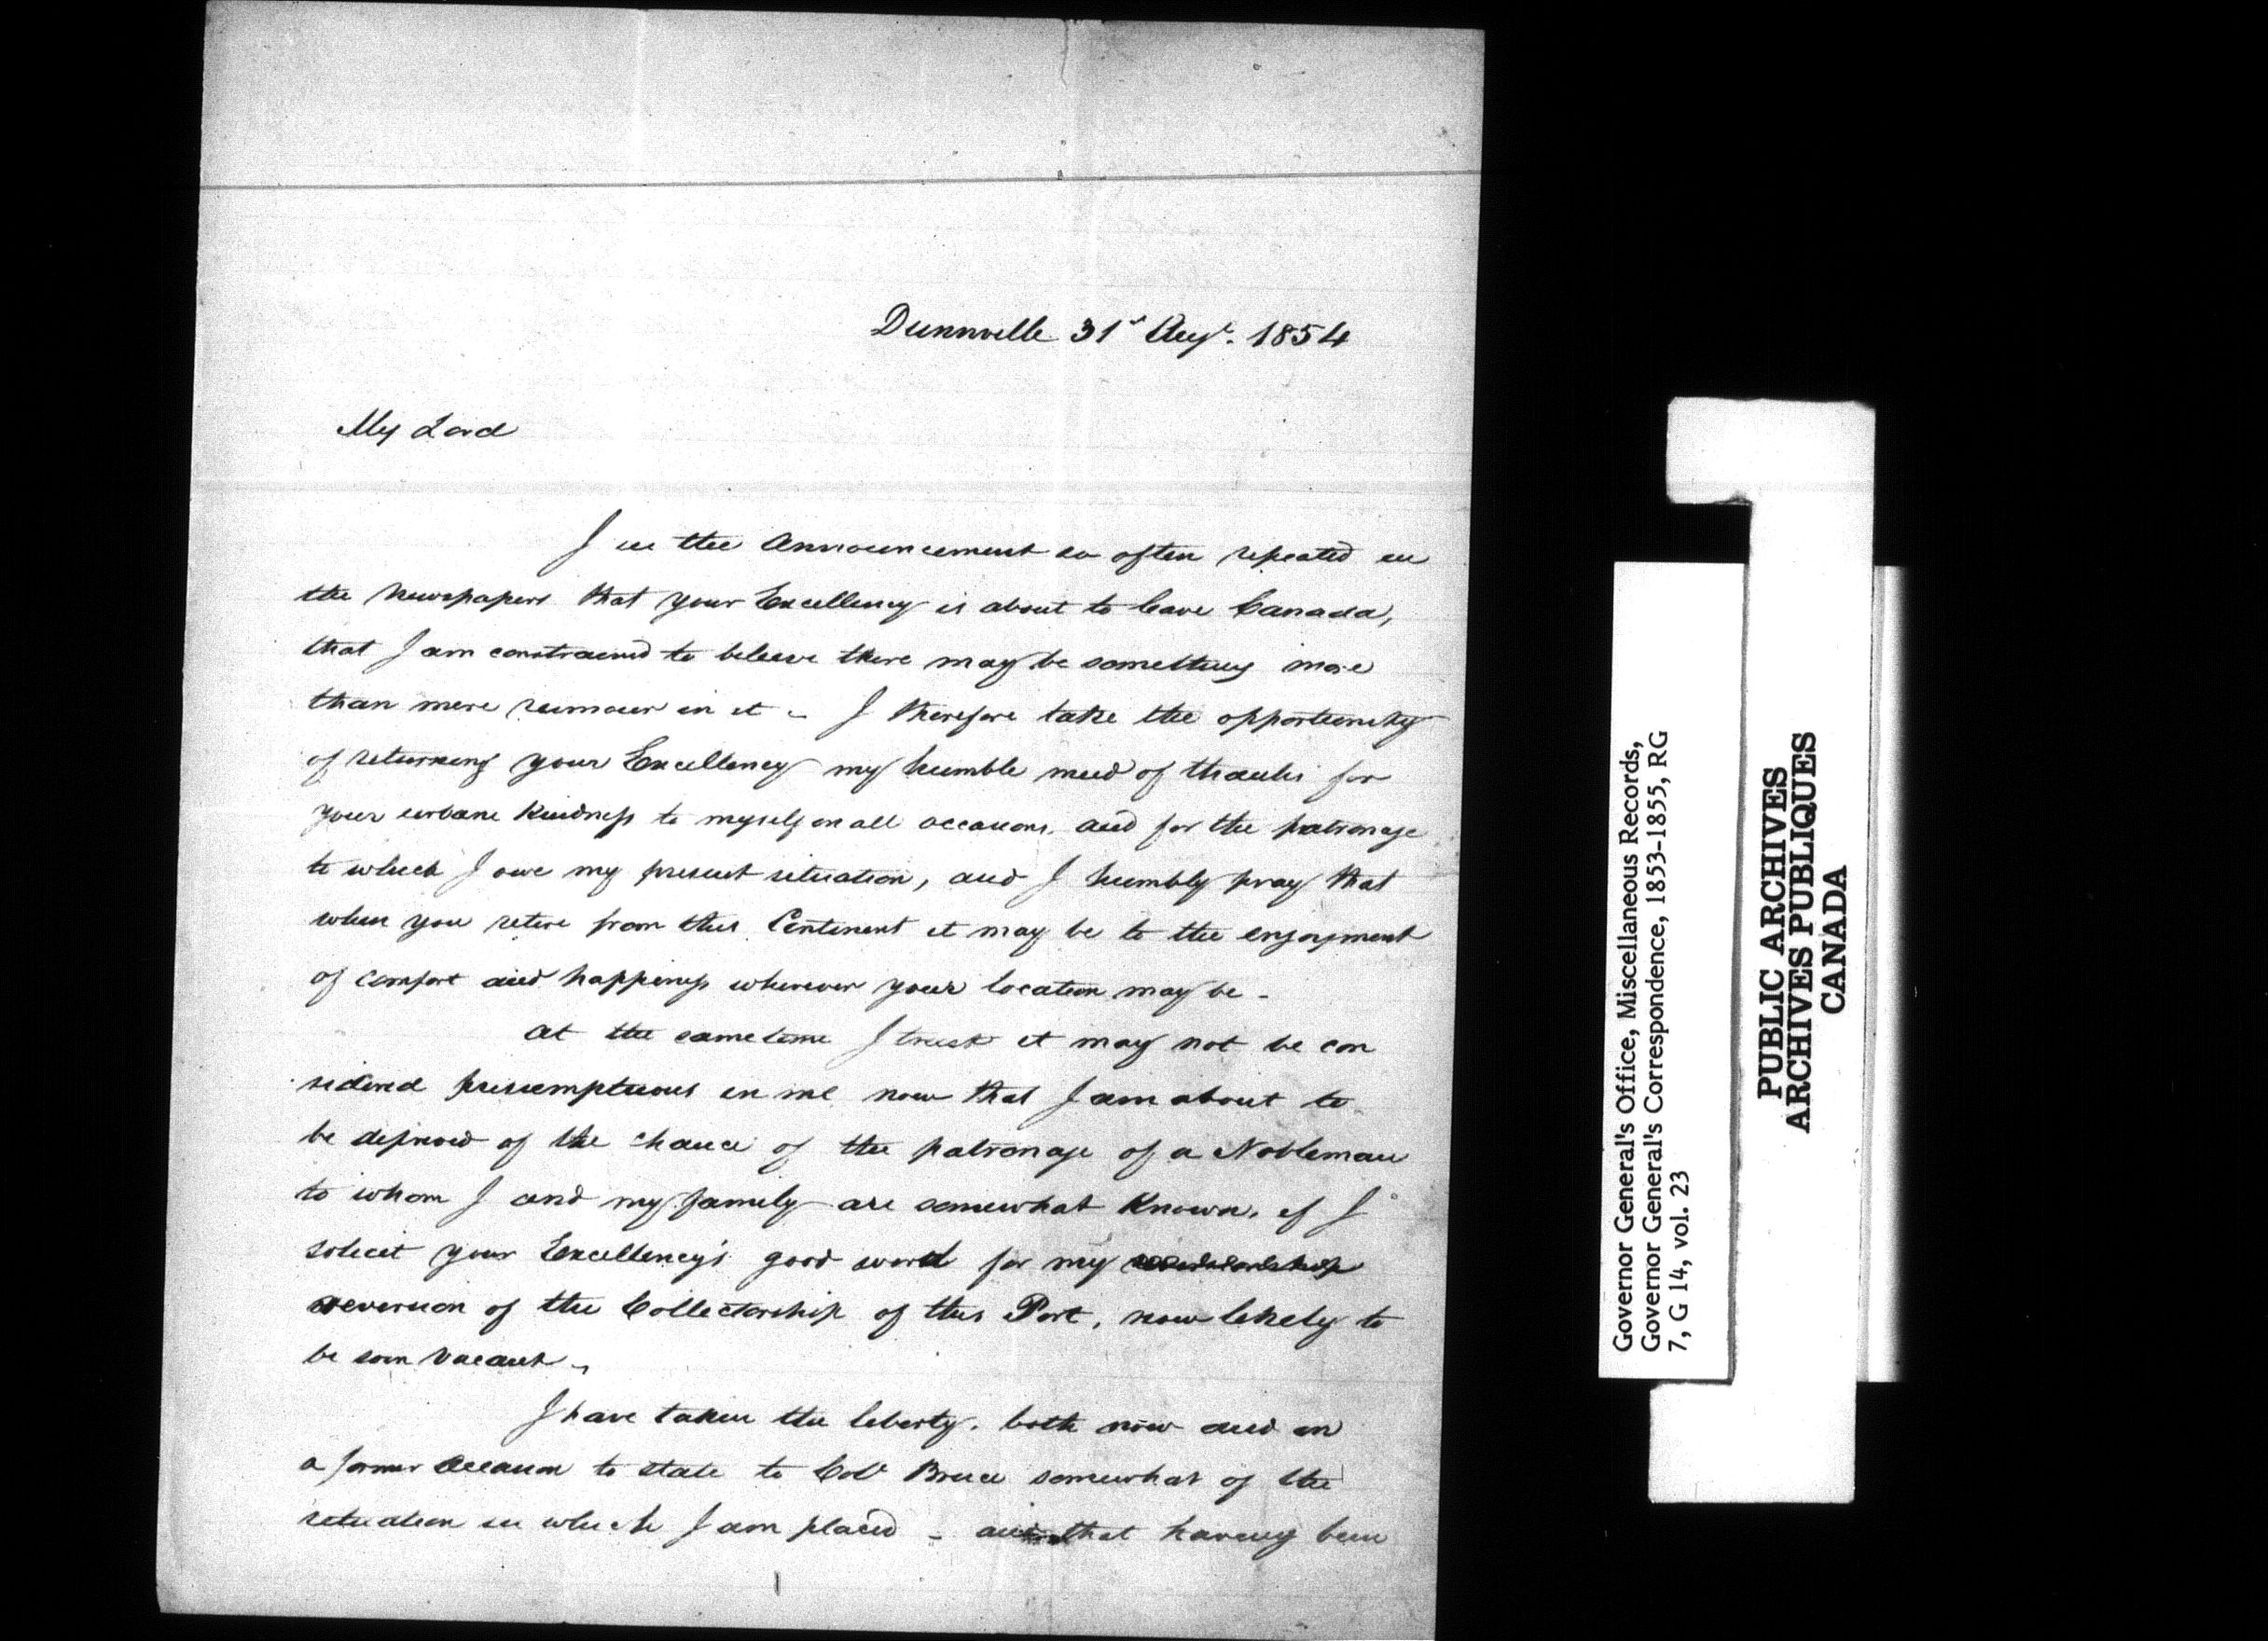 Dunnville 31st Augt. 1854
My Lord
I see the Announcement so often repeated in
the Newspapers that your Excellency is about to leave Canada,
that I am constrained to beleeve there may be something more
than mere rumour in it - I therefore take the opportunity
of returning your Excellency my humble meed of thanks for
your urbane kindness to myself on all occasions. and for the patronage
to which I owe my present situation, and I humbly pray that
when you retire from this Continent it may be to the enjoyment
of comfort and happiness wherever your location may be -
At the same time I trust it may not be con
sidered presumptuous in me now that I am about to
be deprived of the chance of the patronage of a Nobleman
to whom I and my family are somewhat Known. if I
solicit your Excellency's good word for my
reversion of the Collectorship of this Port, now likely to
be soon vacant -
I have taken the liberty. both now and on
a former occasion to state to Col Bruce somewhat of the
situation in which I am placed - that having been
Governor General's Office, Miscellaneous Records,
Governor General's Correspondence, 1853-1855, RG
7, G 14, vol. 23
PUBLIC ARCHIVES
ARCHIVES PUBLIQUES
CANADA